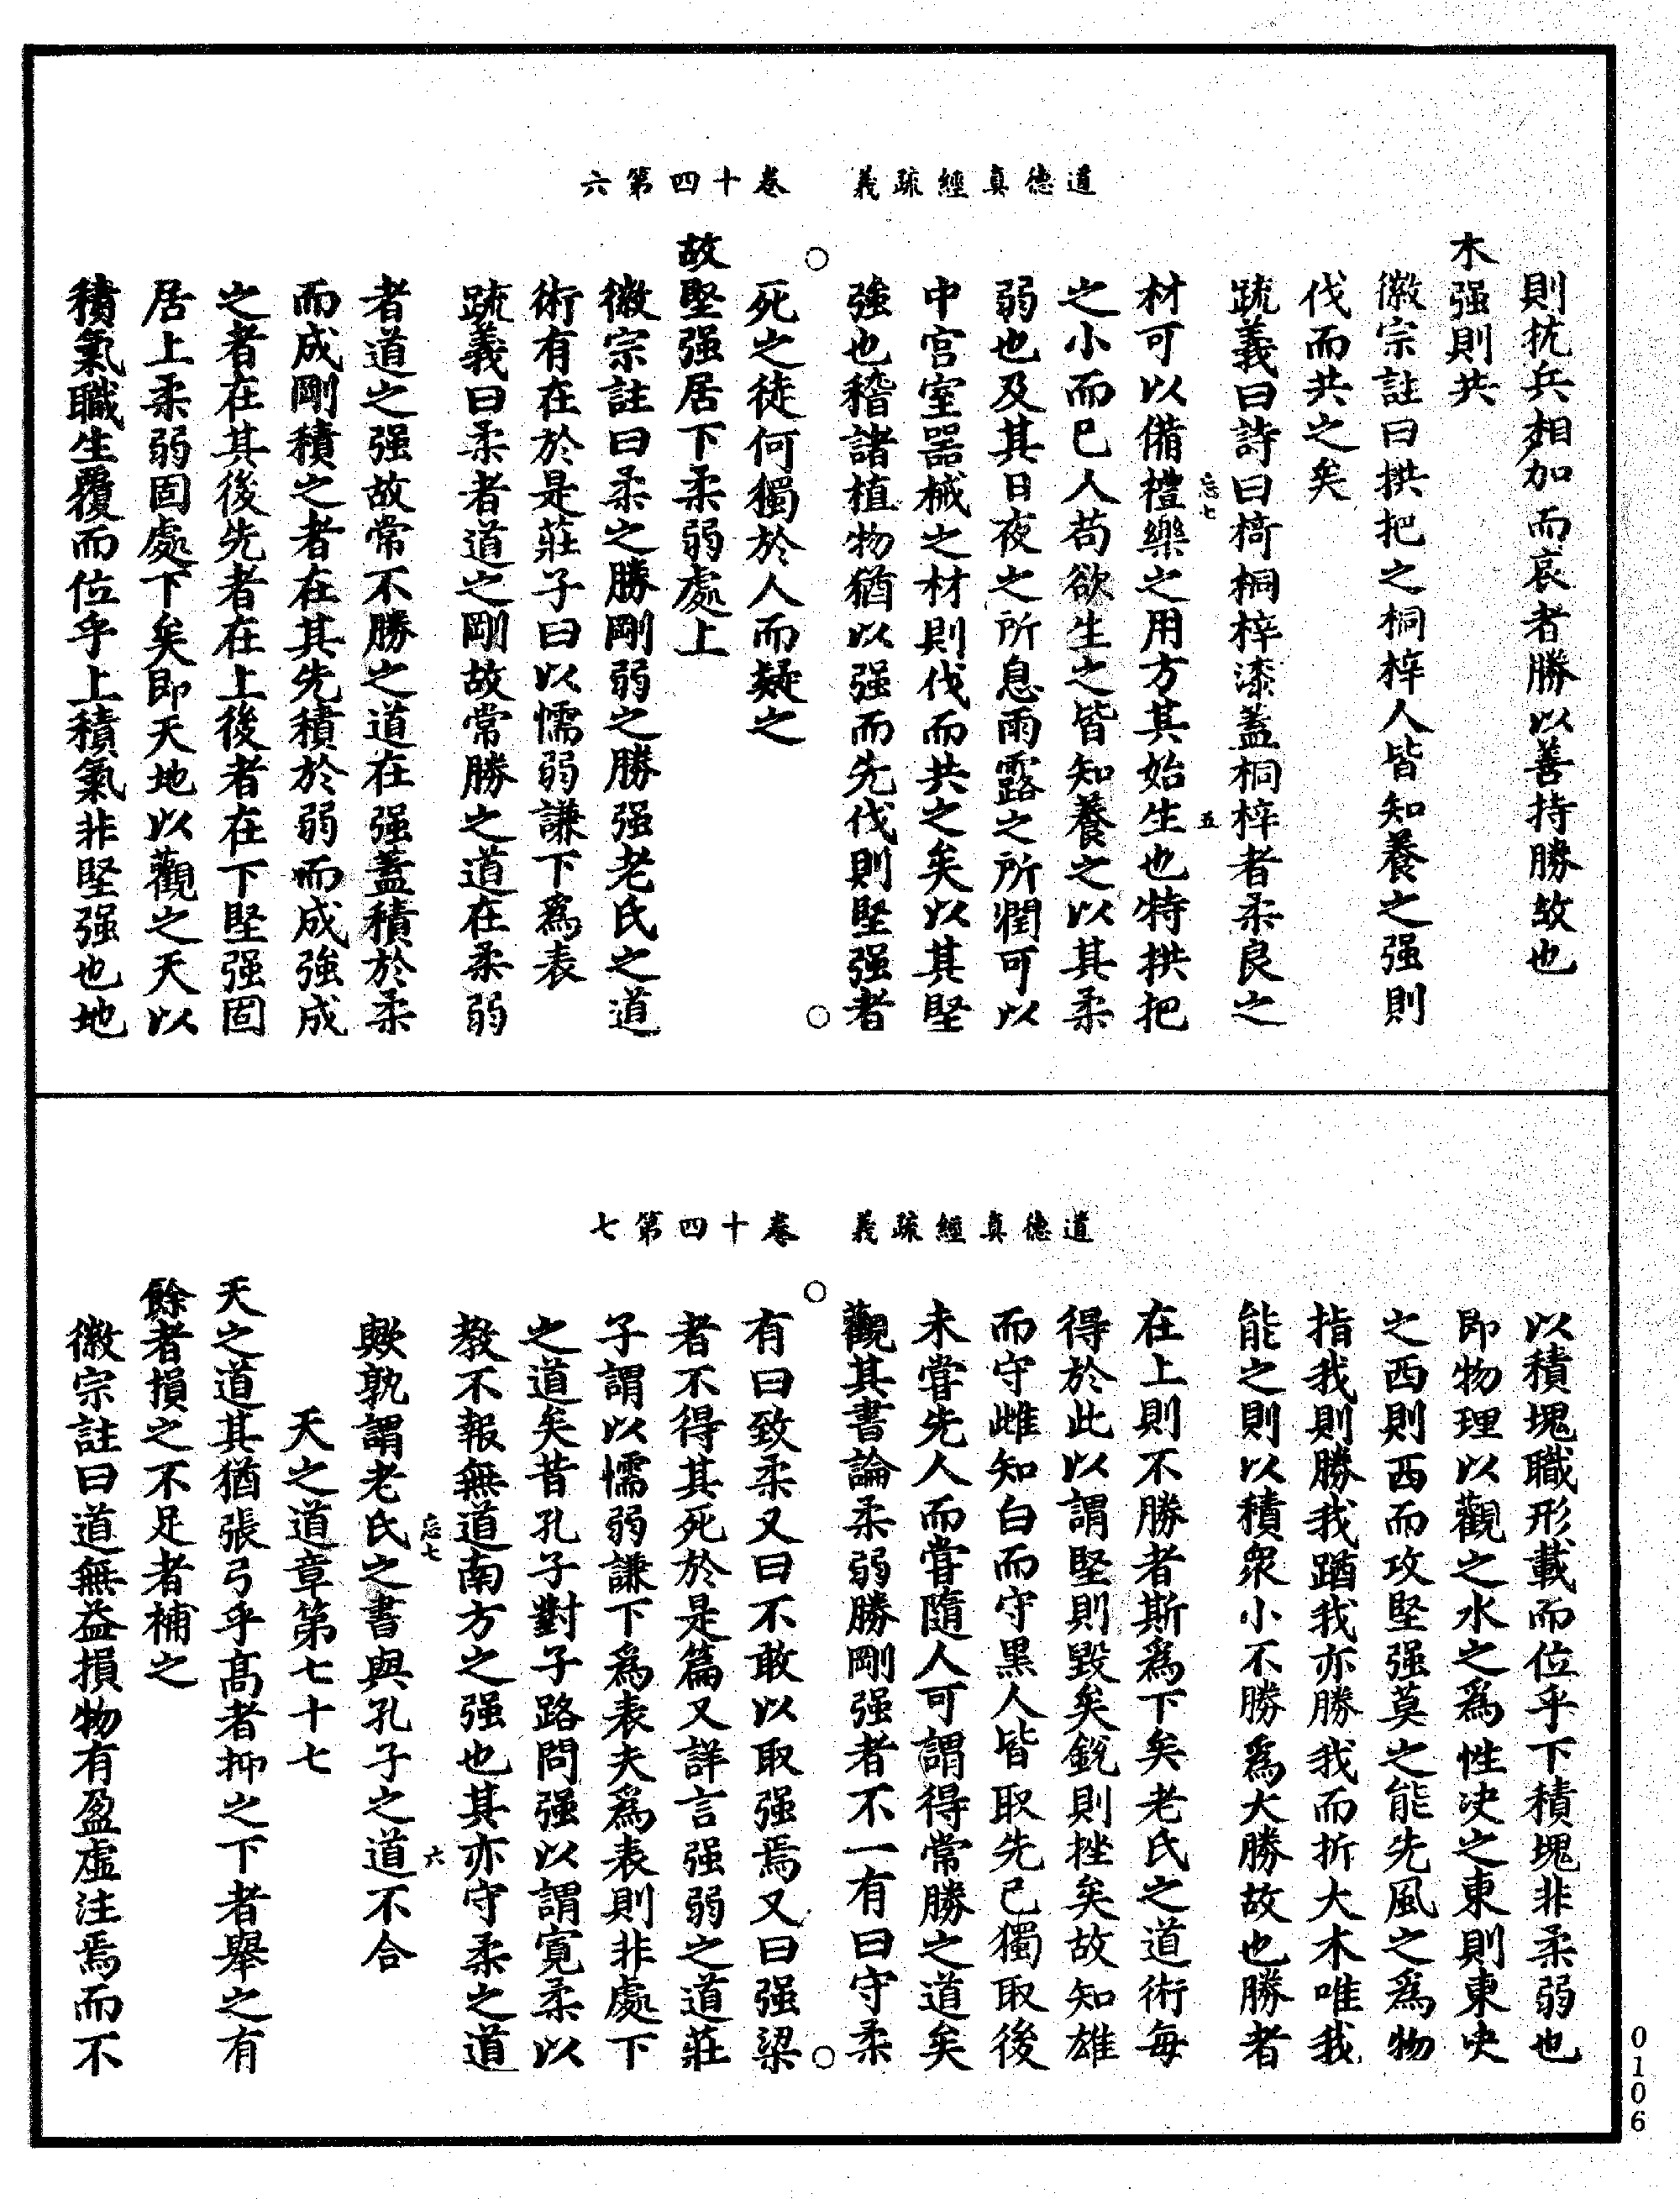 道德真經疏義　卷十四第六
則抗兵相加而哀者勝以善持勝故也
木强則共
徽宗註曰拱把之桐梓人皆知養之强則
伐而共之矣
疏義曰詩曰椅桐梓漆蓋桐梓者柔良之
忘七　五
材可以備禮樂之用方其始生也特拱把
之小而已人苟欲生之皆知養之以其柔
弱也及其日夜之所息雨露之所潤可以
中宫室器械之材則伐而共之矣以其堅
強也稽諸植物猶以强而先伐則堅强者
死之徒何獨於人而疑之
故堅强居下柔弱處上
徽宗註曰柔之勝剛弱之勝强老氏之道
術有在於是莊子曰以懦弱謙下爲表
疏義曰柔者道之剛故常勝之道在柔弱
者道之强故常不勝之道在强蓋積於柔
而成剛積之者在其先積於弱而成強成
之者在其後先者在上後者在下堅强固
居上柔弱固處下矣即天地以觀之天以
積氣職生覆而位乎上積氣非堅强也地
道德真經疏義　卷十四第七
以積塊職形載而位乎下積塊非柔弱也
即物理以觀之水之爲性决之東則東决
之西則西而攻堅强莫之能先風之爲物
指我則勝我蹈我亦勝我而折大木唯我
能之則以積衆小不勝爲大勝故也勝者
在上則不勝者斯爲下矣老氏之道術每
得於此以謂堅則毀矣銳則挫矣故知雄
而守雌知白而守黑人皆取先己獨取後
未嘗先人而嘗隨人可謂得常勝之道矣
觀其書論柔弱勝剛强者不一有曰守柔
有曰致柔又曰不敢以取强焉又曰强梁
者不得其死於是篇又詳言强弱之道莊
子謂以懦弱謙下爲表夫爲表則非處下
之道矣昔孔子對子路問强以謂寛柔以
教不報無道南方之强也其亦守柔之道
忘七　六
歟孰謂老氏之書與孔子之道不合
天之道章第七十七
天之道其猶張弓乎高者抑之下者舉之有
餘者損之不足者補之
徽宗註曰道無益損物有盈虛注焉而不
0106